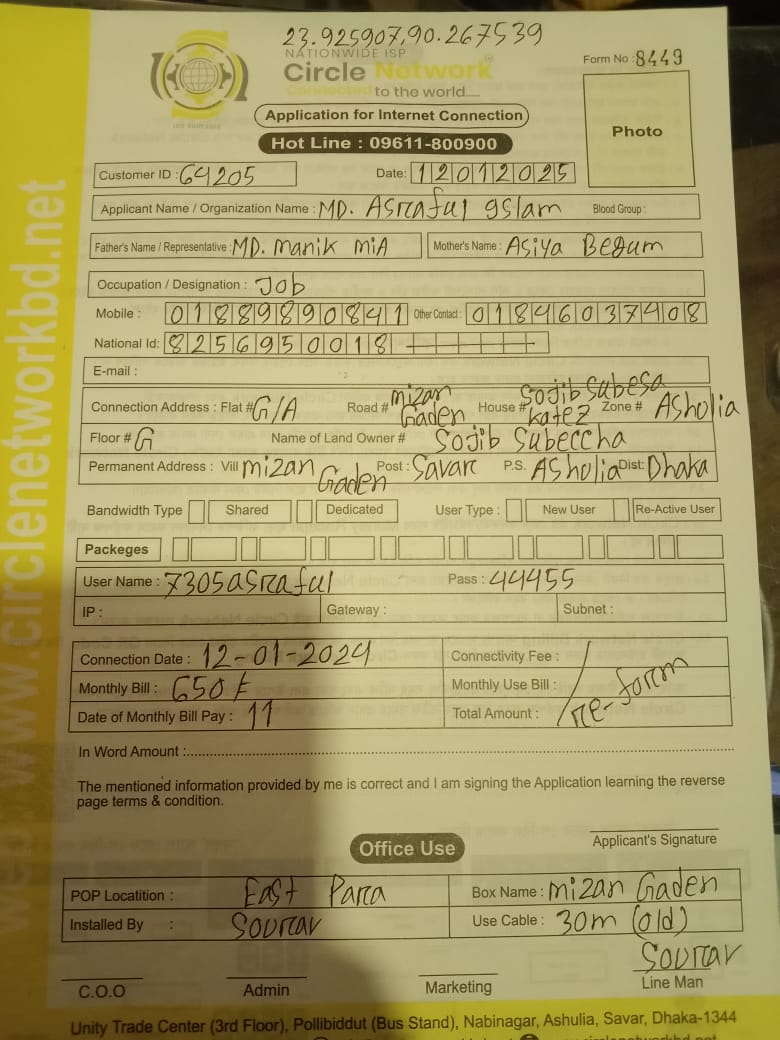 23.925907,90.267539
NATIONWIDE ISP
Circle Network
Connected to the world.....
Form No : 8449
Application for Internet Connection
Hot Line : 09611-800900
Photo
Customer ID : 64205
Date: 12012025
Applicant Name / Organization Name : MD. Asraful Islam Blood Group :
Father's Name / Representative : MD. Manik MiA Mother's Name : Asiya Begum
Occupation / Designation : Job
Mobile : 01889890841 Other Contact : 01846037408
National Id: 8256950018
E-mail :
Connection Address : Flat # G/A Road # Mizan Gaden House # Sojib Subesa Katez Zone # Asholia
Floor # G Name of Land Owner # Sojib Subeccha
Permanent Address : Vill Mizan Gaden Post : Savar P.S. Asholia Dist: Dhaka
Bandwidth Type Shared Dedicated User Type : New User Re-Active User
Packeges
User Name : 7305asraful Pass : 44455
IP : Gateway : Subnet :
Connection Date : 12-01-2024 Connectivity Fee :
Monthly Bill : 650 ৳ Monthly Use Bill :
Date of Monthly Bill Pay : 11 Total Amount : re-form
In Word Amount :
The mentioned information provided by me is correct and I am signing the Application learning the reverse
page terms & condition.
Applicant's Signature
Office Use
POP Locatition : East Para Box Name : Mizan Gaden
Installed By : Sourav Use Cable : 30m (old)
Sourav
C.O.O Admin Marketing Line Man
Unity Trade Center (3rd Floor), Pollibiddut (Bus Stand), Nabinagar, Ashulia, Savar, Dhaka-1344
web: www.circlenetworkbd.net